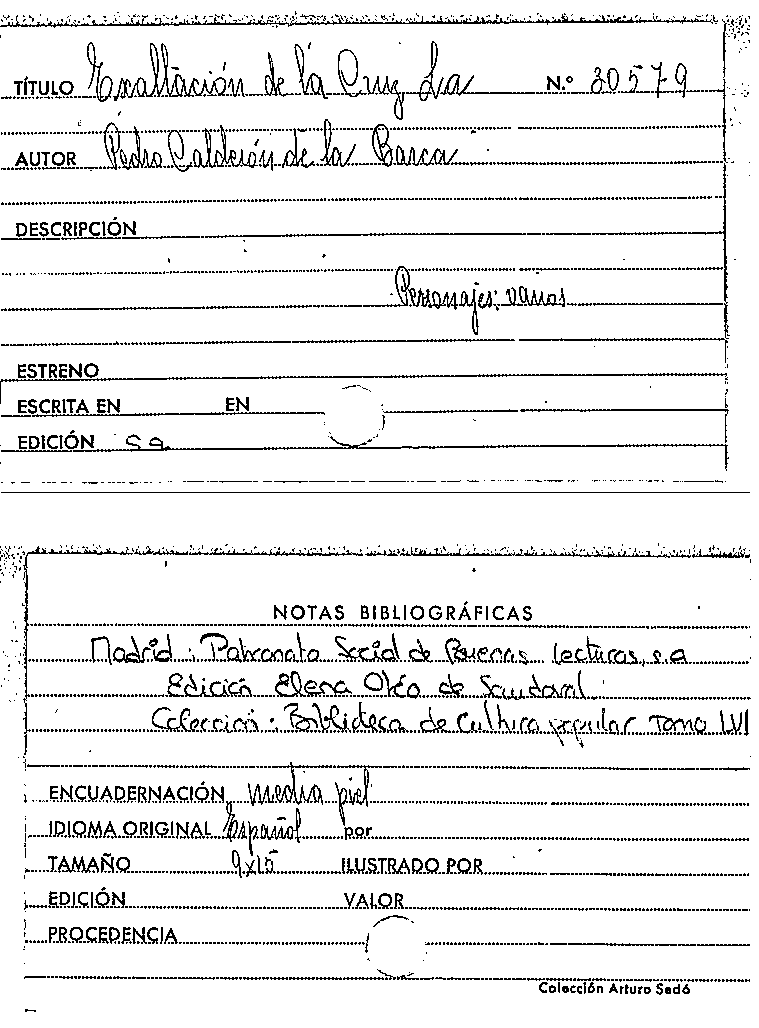 TÍTULO Exaltación de la Cruz La N.º 30579
AUTOR Pedro Calderón de la Barca
DESCRIPCIÓN
Personajes: varios
ESTRENO
ESCRITA EN EN
EDICIÓN s a
NOTAS BIBLIOGRÁFICAS
Madrid: Patronato Social de Buenas Lecturas, s.a
Edición Elena Otéo de Sandoval
Colección: Biblioteca de Cultura popular Tomo LVI
ENCUADERNACIÓN media piel
IDIOMA ORIGINAL Español por
TAMAÑO 9x15 ILUSTRADO POR
EDICIÓN VALOR
PROCEDENCIA
Colección Arturo Sedó